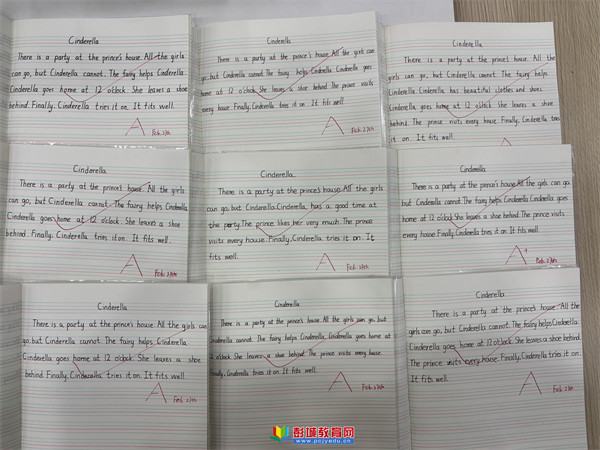 Cinderella
There is a party at the prince's house. All the girls
can go, but Cinderella cannot. The fairy helps Cinderella.
Cinderella goes home at 12 o'clock. She leaves a shoe
behind. Finally, Cinderella tries it on. It fits well.
A Feb. 27th
Cinderella
There is a party at the prince's house. All the girls can
go, but Cinderella cannot. The fairy helps Cinderella. Cinderella goes
home at 12 o'clock. She leaves a shoe behind. The prince visits
every house. Finally, Cinderella tries it on. It fits well.
A Feb. 27th
Cinderella
There is a party at the prince's house. All the
girls can go, but Cinderella cannot. The fairy helps
Cinderella. Cinderella has beautiful clothes and shoes.
Cinderella goes home at 12 o'clock. She leaves a shoe
behind. The prince visits every house. Finally, Cinderella tries
it on. It fits well.
A Feb. 27th
Cinderella
There is a party at the prince's house. All the girls
can go, but Cinderella cannot. The fairy helps Cinderella.
Cinderella goes home at 12 o'clock. She leaves a shoe
behind. Finally, Cinderella tries it on. It fits well.
A Feb. 27th
Cinderella
There is a party at the prince's house. All the girls
can go, but Cinderella. Cinderella has a good time at
the party. The prince likes her very much. The prince
visits every house. Finally, Cinderella tries it on. It
fits well.
A Feb. 27th
Cinderella
There is a party at the prince's house. All the girls can go,
but Cinderella cannot. The fairy helps Cinderella. Cinderella goes
home at 12 o'clock. She leaves a shoe behind. The prince visits
every house. Finally, Cinderella tries it on. It fits well.
A+ Feb. 27th
Cinderella
There is a party at the prince's house. All the girls can
go, but Cinderella cannot. The fairy helps Cinderella.
Cinderella goes home at 12 o'clock. She leaves a shoe
behind. Finally, Cinderella tries it on. It fits well.
A Feb. 27th
Cinderella
There is a party at the prince's house. All the girls can go, but
Cinderella cannot. The fairy helps Cinderella. Cinderella goes home at
12 o'clock. She leaves a shoe behind. The prince visits every house.
Finally, Cinderella tries it on. It fits well.
A Feb. 27th
Cinderella
There is a party at the prince's house. All the
girls can go, but Cinderella cannot. The fairy helps Cinderella.
Cinderella goes home at 12 o'clock. She leaves a shoe behind.
The prince visits every house. Finally, Cinderella tries it on.
It fits well.
A Feb. 27th
彭城教育网
www.pcjyedu.cn